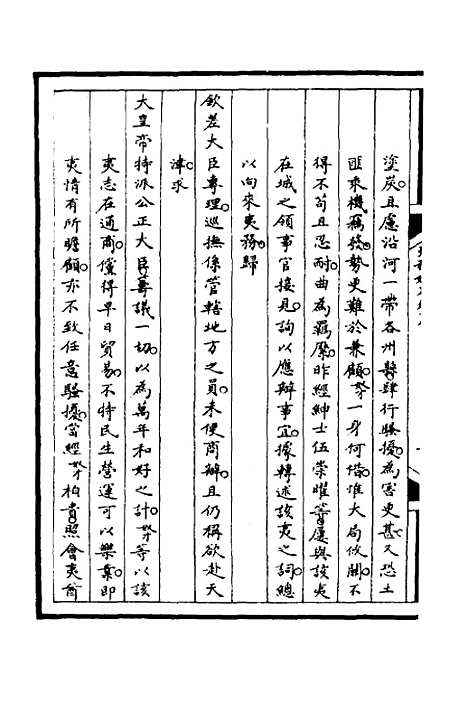 塗炭。且慮沿河一帶各州縣肆行騷擾。為害更甚。又恐土
匪乘機竊發。勢更難於兼顧。奴一身何惜。惟大局攸關。不
得不苟且忍耐。曲為羈縻。昨經紳士伍崇曜等屢與該夷
在城之領事官接見。詢以應辦事宜。據轉述該夷之詞。總
以向來夷務。歸
欽差大臣專理。巡撫係管轄地方之員。未便商辦。且仍稱欲赴天
津。求
大皇帝特派公正大臣籌議一切。以為萬年和好之計。奴等以該
夷志在通商。儻得早日貿易。不特民生營運可以樂業。即
夷情有所瞻顧。亦不致任意騷擾。當經奴柏貴照會夷酋